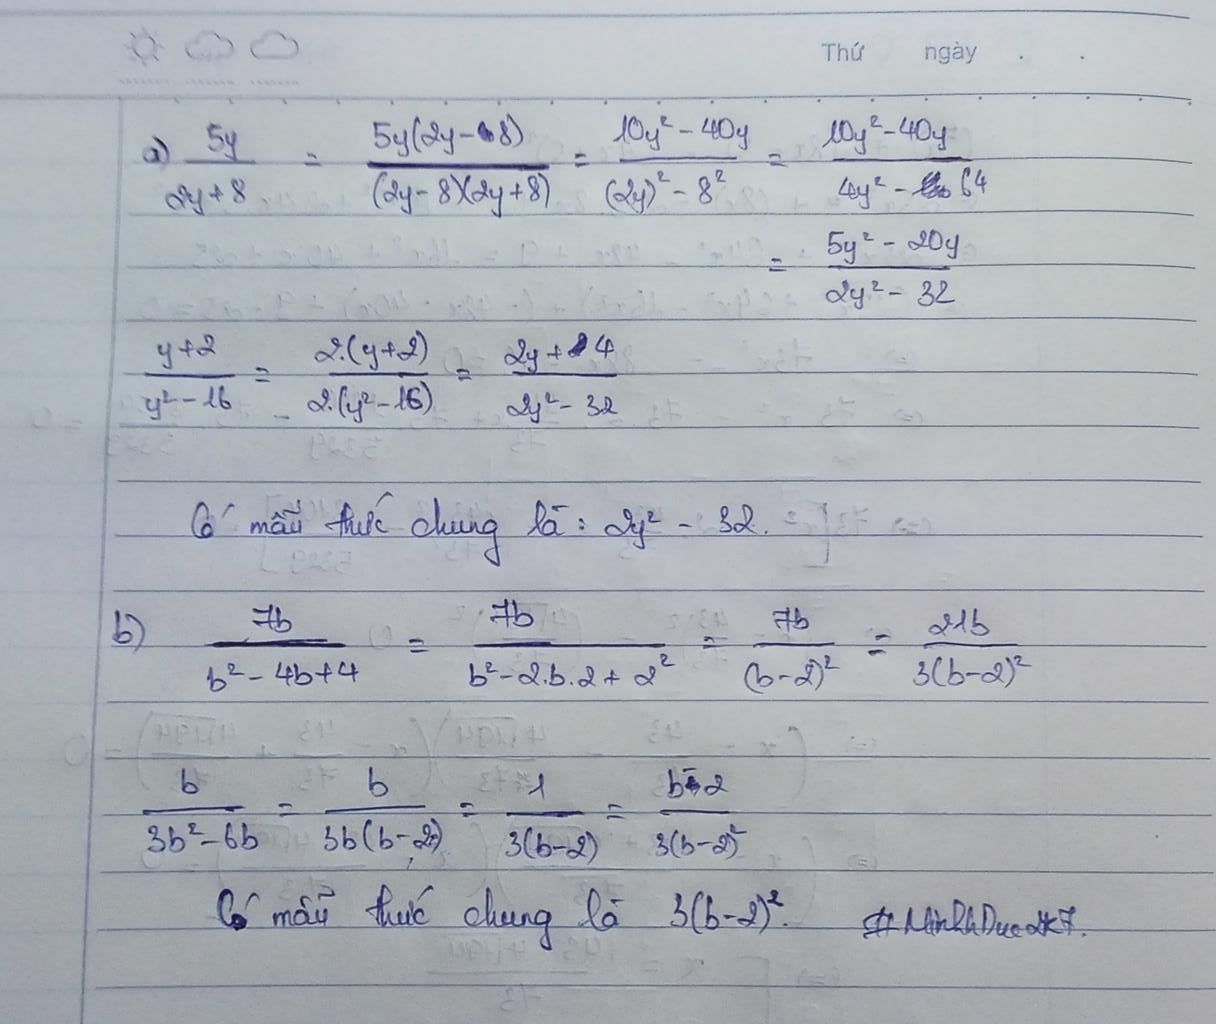 Thứ ngày . .
a) 5y/(2y+8) = 5y(2y-8)/((2y-8)(2y+8)) = (10y²-40y)/((2y)²-8²) = (10y²-40y)/(4y²-64)
= (5y²-20y)/(2y²-32)
(y+2)/(y²-16) = 2.(y+2)/(2.(y²-16)) = (2y+4)/(2y²-32)
Có mẫu thức chung là: 2y² - 32.
b) 7b/(b²-4b+4) = 7b/(b²-2.b.2+2²) = 7b/(b-2)² = 21b/(3(b-2)²)
b/(3b²-6b) = b/(3b(b-2)) = 1/(3(b-2)) = (b-2)/(3(b-2)²)
Có mẫu thức chung là 3(b-2)². #MinhDuc2k7.